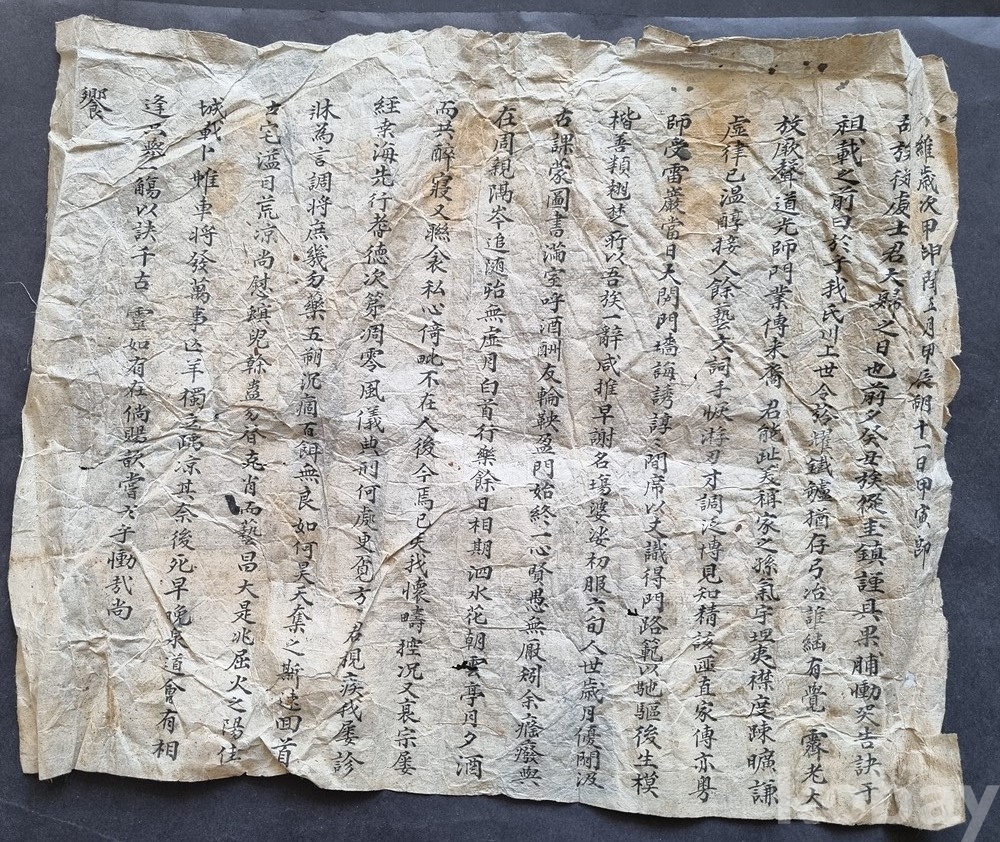 維歲次甲卯閏五月甲辰朔十一日甲寅卽
吾族從處士君大歸之日也前夕癸丑族從圭鎭謹具果脯慟哭告訣于
祖載之前曰於乎我氏川上世令 鐵鑪猶存弓冶誰繼有覺 霽老大
放厥聲道光師門業傳來裔 君能趾美稱家之孫氣宇坦夷襟度踈曠謙
虛律己溫醇接人餘藝文詞手 游刃才調 博見知精該 直家傳亦粤
師受雪巖當日大闢門墻誨誘諄〻間席以丈識得門路範以馳驅後生模
楷善類翹楚所以吾族一辭咸推早謝名塲婆娑初服六旬人世歲月優閒汲
古課蒙圖書滿室呼酒酬友輪鞅盈門始終一心賢愚無厭矧余癃癈與
在周親隅岑追隨殆無虛月白首行樂餘日相期泗水花朝雲亭月夕酒
而共醉寢又聯衾私心倚毗不在人後今焉已矣我懷疇控况又衰宗屢
經桑海先行耆德次第凋零風儀典刑何處更覓方 君視疾我屢診
牀爲言調將庶幾勿藥五朔沉痼百餌無良如何昊天奪之斯速回首
古宅 目荒凉尚慰鎭兒幹蠱勿替克肖 藝昌大是兆屈火之陽佳
城載卜帷車將發萬事亡羊獨立隅凉其奈後死早晩泉道會有相
逢 觴以訣千古 靈如有在倘賜歆嘗於乎慟哉尚
饗
kobay